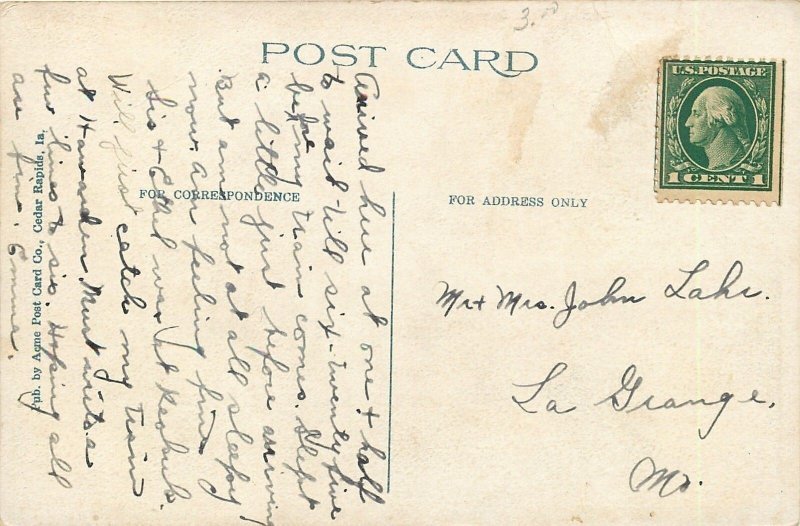 3.00
POST CARD
U.S. POSTAGE
1 CENT 1
FOR CORRESPONDENCE
FOR ADDRESS ONLY
Pub. by Acme Post Card Co., Cedar Rapids, Ia.
Arrived here at one & half
to wait till six-twenty five
before my train comes. Slept
a little just before arriving
But am not at all sleepy
now. am feeling fine
Sis & Ethel was at Keokuk.
Will just catch my train
at Hawarden. Must write a
few lines to sis. Hoping all
are fine. Emma.
Mr & Mrs. John Lahr.
La Grange,
Mo.